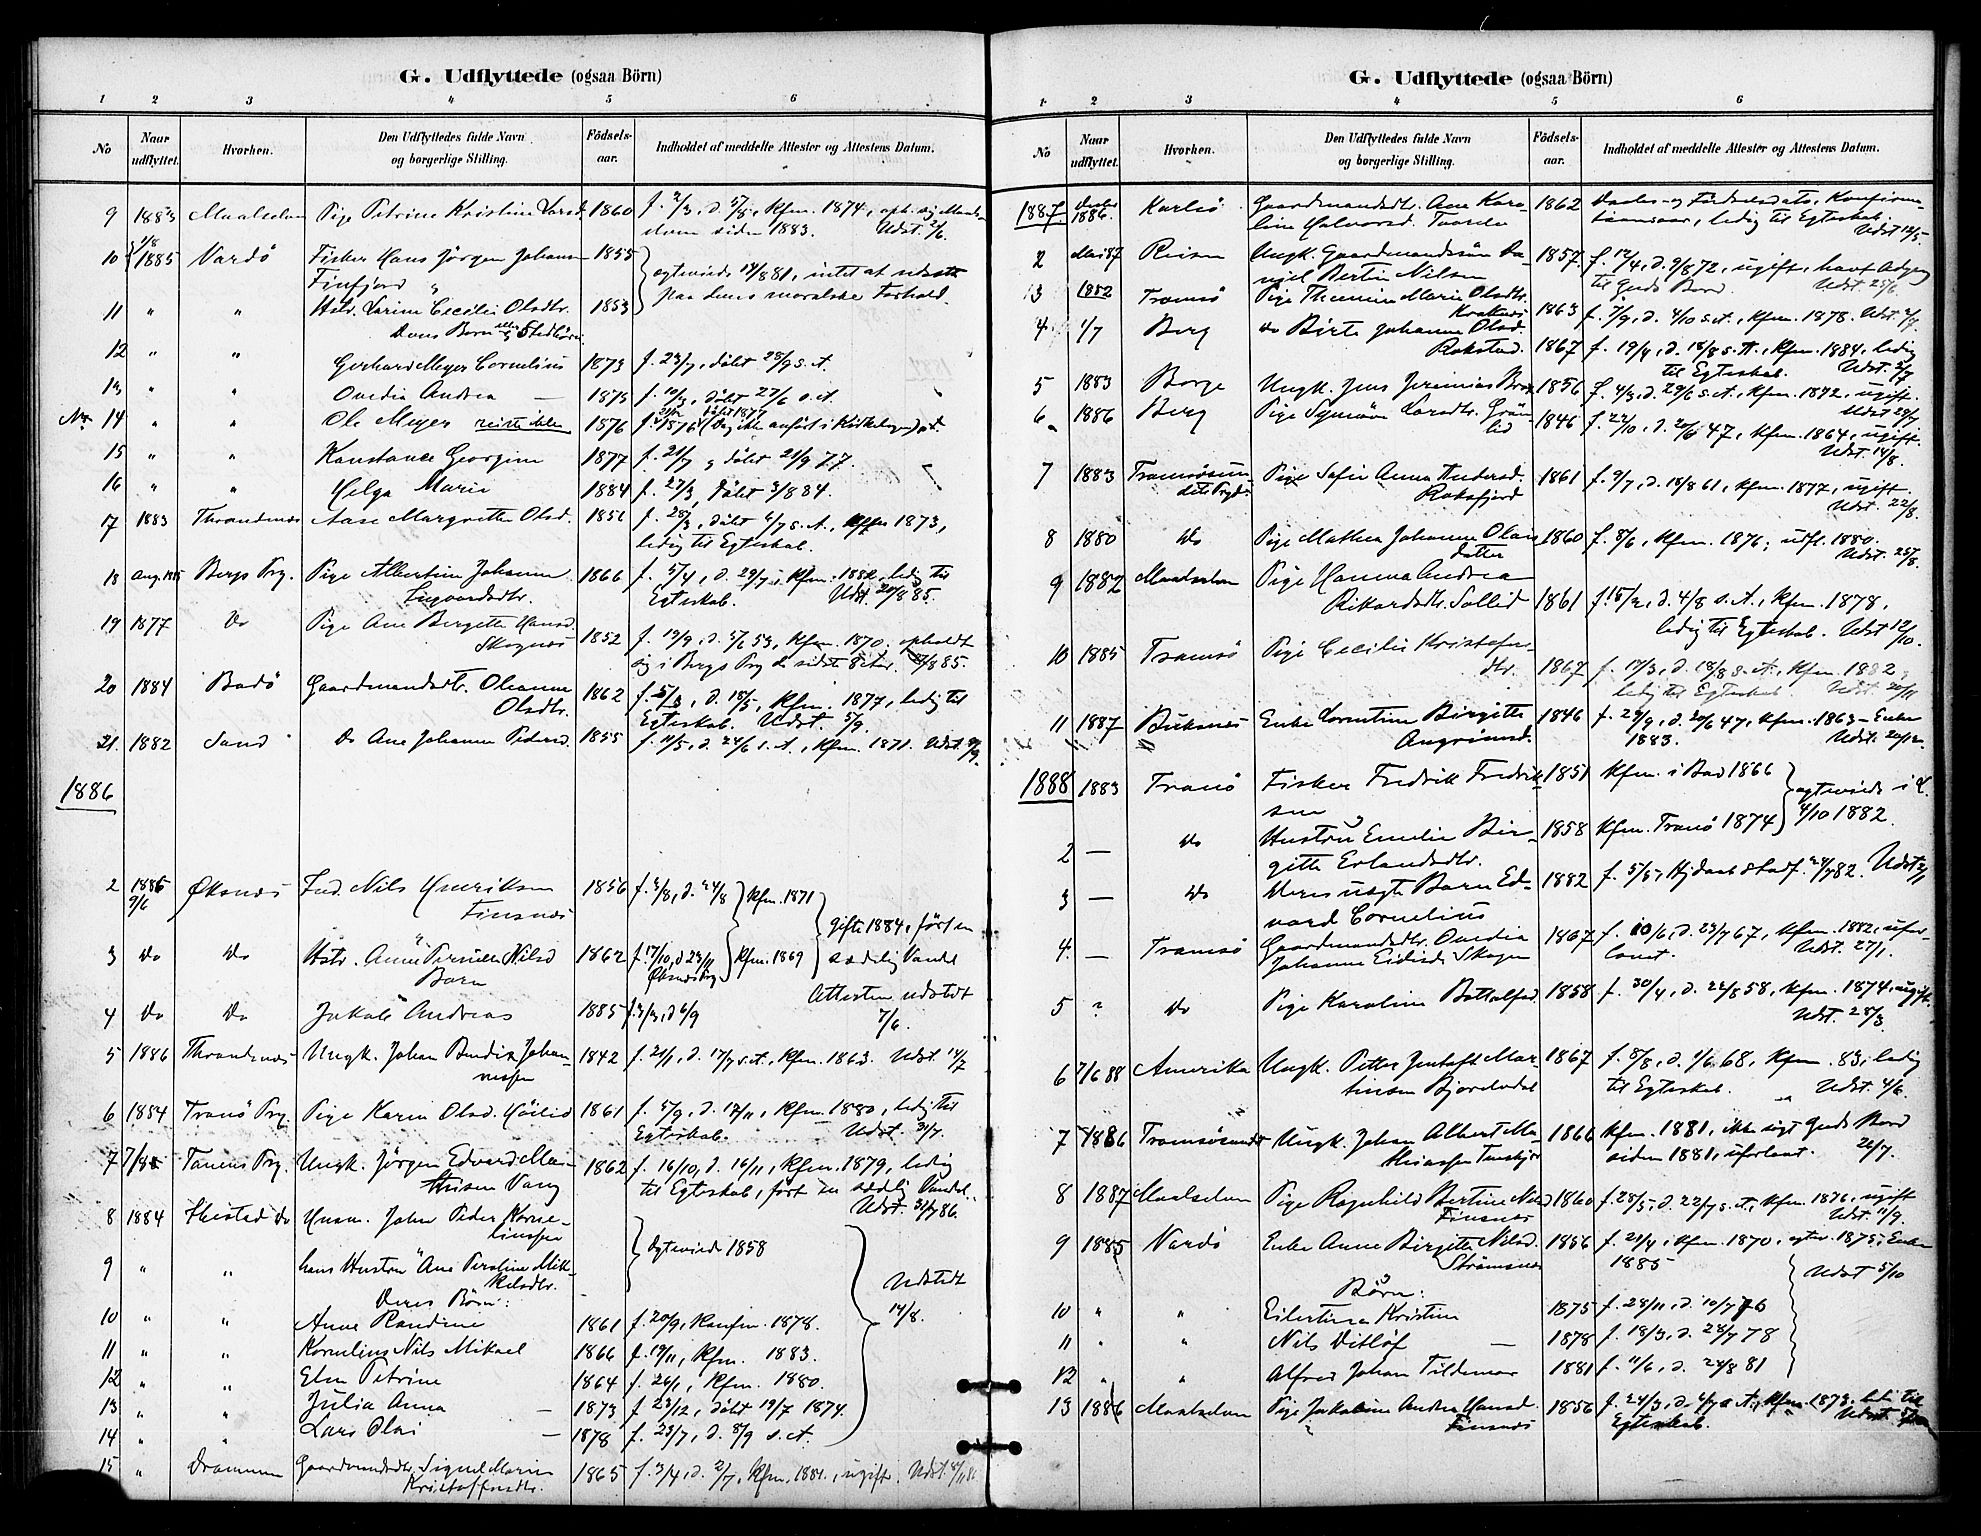 G. Udflyttede (ogsaa Börn)
1 2 3 4 5 6
No
Naar udflyttet.
Hvorhen.
Den Udflyttedes fulde Navn
og borgerlige Stilling.
Födsels-
aar.
Indholdet af meddelte Attester og Attestens Datum.
9 1883 Maalselven Pige Petrine Kristine Larsd. 1860 f. 2/3, d. 5/8, Kfm. 1874, oph. sig Maals-
elven siden 1883. Udst. 2/6.
10 1/8 1885 Vardö Fisker Hans Jörgen Johansen 1855
Finfjord
ægteviede 14/8 81, intet at udsætte
paa deres moralske Forhold.
11 " " Hstr. Karine Cecilie Olsdtr. 1853
Deres Børn eller Stedbørn
12 " " Gerhard Meyer Cornelius 1873 f. 23/7, døbt 28/9 s. A.
13 " " Ovedia Andrea — 1875 f. 10/3, døbt 27/6 s. A.
14 " " Ole Meyer reiste ikke 1876
15 " " Konstance Georgine 1877 f. 21/7 og døbt 21/9 77.
16 " " Helga Marie 1884 f. 27/3, døbt 3/8 84.
17 1883 Throndenæs Aase Margrethe Olsd. 1856 f. 28/3, døbt 6/7 s. A., Kfm 1873,
ledig til Egteskab.
18 Aug. 1885 Bergs Prg. Pige Albertine Johanna 1866 f. 5/4, d. 29/7, Kfm. 1882, ledig til
Ingvardsdtr. Egteskab. Udst. 20/8 85.
19 1877 Do Pige Ane Birgitte Hansd.
Skognæs 1852 f. 19/9, d. 5/6 53, Kfm. 1870, opholdt
sig i Bergs Prg de sidste 8 Aar. 8/8 85.
20 1884 Bodö Gaardmandsdtr. Oleanna 1862 f. 5/3, d. 18/5, Kfm. 1877, ledig til
Olsdtr. Egteskab. Udst. 5/9.
21. 1882 Sand Do Ane Johanne Pedersd. 1855 f. 11/5, d. 24/6 s. A., Kfm. 1871. Udst.
1886
2 1885 9/6 Øksnæs Ind. Nils Henriksen 1856 f. 3/8, d. 24/8 Kfm. 1871
Finsnæs
gifte 1884, ført en
3 Do Do Hstr. Anne Pernille Nilsd 1862 f. 17/10, d 23/11 Kfm. 1869 sædelig Vandel
Barn
Attesten udstedt
4 Do Do Jakob Andreas 1885 d 6/9 7/6.
5 1886 Throndenæs Ungk. Johan Bendix Johan- 1842 f. 21/1, d. 17/7 s. A., Kfm. 1863. Udst. 14/7
nessen
6 1884 Tranö Prg. Pige Karen Olsd. 1861 f. 5/9, d. 17/11, Kfm. 1880, ledig til
Egteskab. Udst. 31/7.
7 Tanens Prg. Ungk. Jörgen Edvard Ma- 1862 f. 16/10, d. 16/11, Kfm. 1879, ledig
thisen Vang til Egteskab, ført en sædelig Vandel.
Udst. 31/7 86.
8 1884 Do Husm. John Peder Korne-
liussen
Ægteviede 1858
9 " " hans Hustru Ane Peroline Mik-
kelsdtr.
Deres Börn:
Udstedt
14/8.
10 " " Anne Randine 1861 f. 20/9, Konfm. 1878.
11 " " Kornelius Nils Mikael 1866 f. 19/11, Kfm. 1883.
12 " " Elen Petrine 1864 f. 26/1, Kfm. 1880.
13 " " Julia Anna — 1873 f 23/12, døbt 19/7 1874.
14 " " Lars Olai — 1878 f. 23/7, d. 8/9 s. A.
15 " Drammen Gaardmandsdtr. Signel Marie 1865 f. 3/4, d. 2/7, Kfm. 1881, ugift. Udst.
Kristoffersdtr.
G. Udflyttede (ogsaa Börn)
1 2 3 4 5 6
No
Naar udflyttet.
Hvorhen.
Den Udflyttedes fulde Navn
og borgerlige Stilling.
Födsels-
aar.
Indholdet af meddelte Attester og Attestens Datum.
1887 1886. Karlsö Gaardmandsdtr. Ane Karo- 1862 Daabs- og Födselsdato, Konfirma-
line Halvorsd. tionsaar, ledig til Egteskab.
Udst 12/5.
2 Mai 87 Reisen Ungk. Gaardmandssön Da- 1857. f. 12/4, d. 9/8 72, ugift, havt Adgang
niel Bertin Nilsen til Guds Bord. Udst. 25/6.
3 1882 Tromsö Pige Marie Olsdtr.
Kraknes 1863 f. 7/9, d. 4/10 s. A., Kfm. 1878. Udst.
4. 1/7 Berg do Birte Johanne Olsd.
Rokstad. 1867 f. 19/4, d. 18/8 s. A., Kfm. 1884, ledig
til Egteskab. Udst.
5 1883 Borge Ungk. Jens Jeremias 1856 f. 4/3, d. 29/6 s. A., Kfm. 1872, ugift.
Udst 29/7
6 1886 Berg Pige Synnöve Larsdtr. Grön-
lid 1846 f. 23/10, d. 20/6 47, Kfm. 1864, ugift.
Udst. 14/8.
7 1883 Tromsösun- Pige Sofie Anna Andersd. 1861 f. 9/7, d. 18/8 61, Kfm. 1877, ugift
dets Prgd. Roksfjord Udst. 22/8.
8 1880 Do Pige Mathea Johanne Olais 1860 f. 8/6, Kfm. 1876, udfl. 1880.
datter Udst. 25/8.
9 1882 Maalselven Pige Hanna Andrea
Rikardsdtr. Sollid 1861 f. 15/2, d. 4/8 s. A., Kfm. 1878,
ledig til Egteskab. Udst 12/10.
10 1885 Tromsö Pige Cecilie Kristofer-
dtr. 1867 f. 17/3, d. 18/8 s. A., Kfm. 1882,
ledig til Egteskab Udst. 20/11
11 1887 Buksnæs Enke Lorentine Birgitte 1846 f. 29/9, d. 20/6 47, Kfm. 1863 - Enke
1883. Udst. 20/12.
1888 1883 Tranö Fisker Fredrik Fredrik- 1851 Kfm. i Bad 1866
sen
ægteviede i L.
4/10 1882.
2 — Do Hustru Emelie Bir- 1858 Kfm. Tranö 1874
gitte Erlandsdtr.
3 — Do Deres ægte Barn Ed- 1882 f. 5/5, Hjdaab stadf. 24/7 82. Udst
vard Cornelius
4. — Tromsö Gaardmandsdtr. Ovedia 1867 f. 10/6, d. 23/7 67, Kfm. 1882, ufor-
Johanne Eidisd. Skogen lovet. Udst. 27/1.
5 ? Do Pige Karoline Bottolfsd. 1858 f. 30/4, d. 22/8 58, Kfm. 1874, ugift.
Udst. 28/3.
6 7/6 88 Amerika Ungk. Petter Gustaft Mar- 1867 f. 8/8, d. 1/6 68, Kfm. 83, ledig
tinsen Bjorelvdal til Egteskab. Udst. 4/6.
7 1886 Tromsösundet Ungk. Johan Albert Ma- 1866 Kfm. 1881, ikke sögt Guds Bord
thiassen siden 1881, uforlovet. 26/7.
8 1887 Maalselven Pige Ragnhild Bertine Nilsd 1860 f. 28/5, d. 22/7 s. A., Kfm. 1876, ugift
Finsnes Udst. 11/9.
9 1885 Vardö Enke Anne Birgitte Nilsd. 1856 f. 21/4, Kfm. 1870, egtev. 1875, Enke
Strömsnes 1885
Börn: Udst 5/10
10 " " Eilertina Kristine 1875 f. 28/11, d. 10/7 76
11 " " Nils Ditlöf — 1878 f. 18/3, d. 28/7 78
12 " " Alfred Johan Tildemar 1881 f. 11/6, d. 24/8 81
13 1886 Maalselven Pige Jakobine Andrea Hansd. 1856 f. 24/3, d. 6/7 s. A., Kfm. 1873, ledig til
Finsnæs Egteskab. Udst.